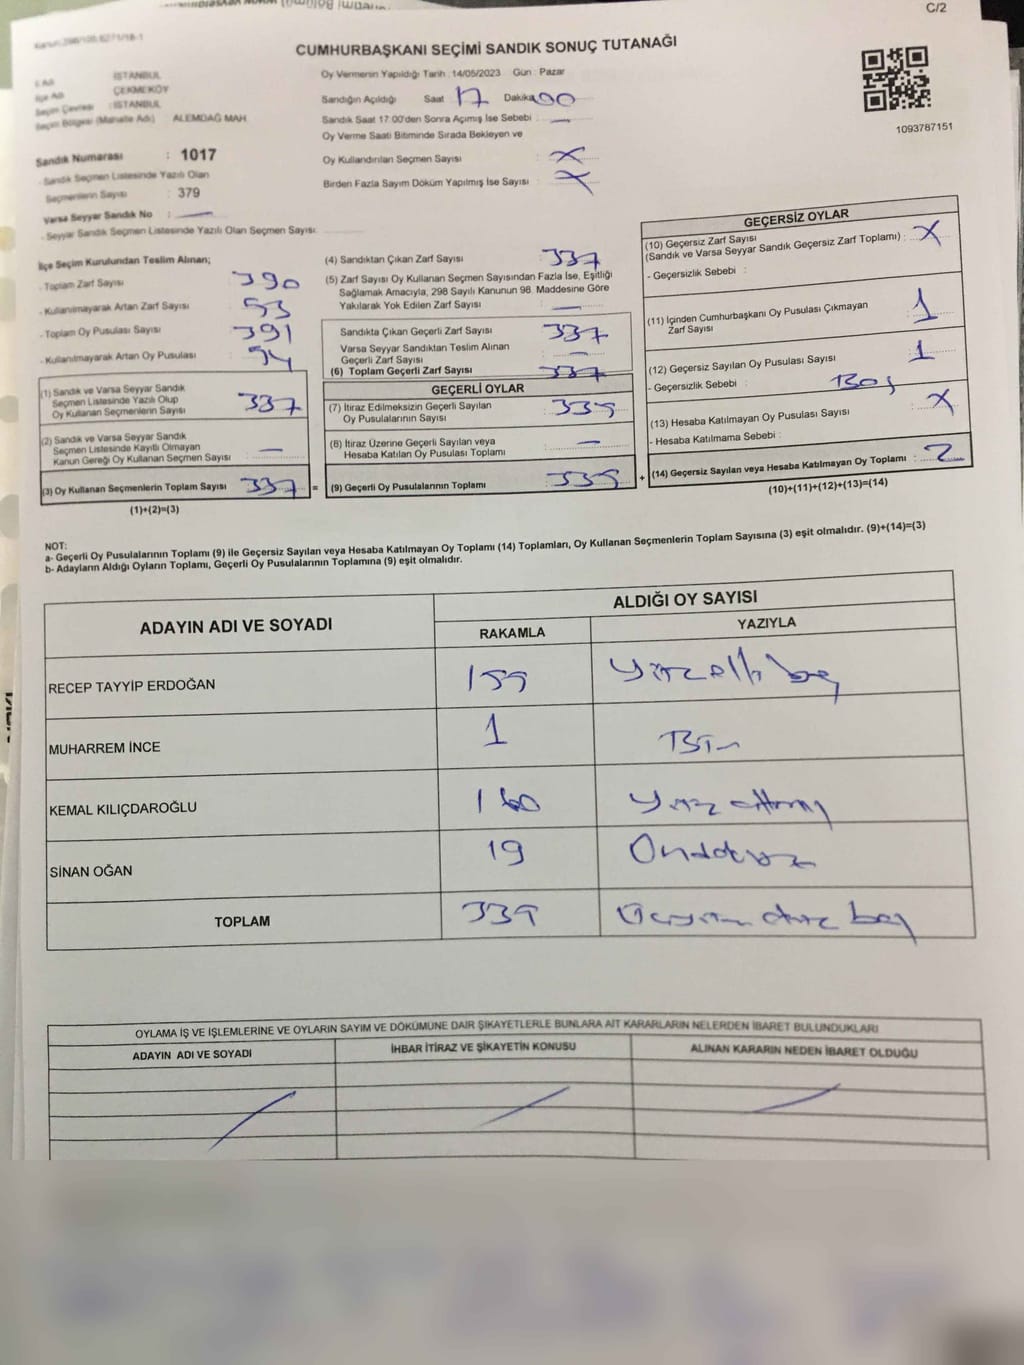 C/2
CUMHURBAŞKANI SEÇİMİ SANDIK SONUÇ TUTANAĞI
İli Adı İSTANBUL
İlçe Adı ÇEKMEKÖY
Seçim Çevresi : İSTANBUL
Seçim Bölgesi (Mahalle Adı) ALEMDAĞ MAH.
Sandık Numarası : 1017
- Sandık Seçmen Listesinde Yazılı Olan
Seçmenlerin Sayısı : 379
Varsa Seyyar Sandık No : —
- Seyyar Sandık Seçmen Listesinde Yazılı Olan Seçmen Sayısı:
Oy Vermenin Yapıldığı Tarih : 14/05/2023 Gün : Pazar
Sandığın Açıldığı Saat 17 Dakika 00
Sandık Saat 17:00'den Sonra Açımış İse Sebebi : —
Oy Verme Saati Bitiminde Sırada Bekleyen ve
Oy Kullandırılan Seçmen Sayısı : X
Birden Fazla Sayım Döküm Yapılmış İse Sayısı : X
1093787151
İlçe Seçim Kurulundan Teslim Alınan;
- Toplam Zarf Sayısı : 390
- Kullanılmayarak Artan Zarf Sayısı : 53
- Toplam Oy Pusulası Sayısı : 391
- Kullanılmayarak Artan Oy Pusulası : 54
(1) Sandık ve Varsa Seyyar Sandık
Seçmen Listesinde Yazılı Olup
Oy Kullanan Seçmenlerin Sayısı : 337
(2) Sandık ve Varsa Seyyar Sandık
Seçmen Listesinde Kayıtlı Olmayan
Kanun Gereği Oy Kullanan Seçmen Sayısı : —
(3) Oy Kullanan Seçmenlerin Toplam Sayısı : 337 =
(1)+(2)=(3)
(4) Sandıktan Çıkan Zarf Sayısı : 337
(5) Zarf Sayısı Oy Kullanan Seçmen Sayısından Fazla İse, Eşitliği
Sağlamak Amacıyla, 298 Sayılı Kanunun 98. Maddesine Göre
Yakılarak Yok Edilen Zarf Sayısı : —
Sandıkta Çıkan Geçerli Zarf Sayısı : 337
Varsa Seyyar Sandıktan Teslim Alınan
Geçerli Zarf Sayısı : —
(6) Toplam Geçerli Zarf Sayısı : 337
GEÇERLİ OYLAR
(7) İtiraz Edilmeksizin Geçerli Sayılan
Oy Pusulalarının Sayısı : 335
(8) İtiraz Üzerine Geçerli Sayılan veya
Hesaba Katılan Oy Pusulası Toplamı : —
(9) Geçerli Oy Pusulalarının Toplamı : 335 +
GEÇERSİZ OYLAR
(10) Geçersiz Zarf Sayısı
(Sandık ve Varsa Seyyar Sandık Geçersiz Zarf Toplamı) : X
- Geçersizlik Sebebi :
(11) İçinden Cumhurbaşkanı Oy Pusulası Çıkmayan
Zarf Sayısı : 1
(12) Geçersiz Sayılan Oy Pusulası Sayısı : 1
- Geçersizlik Sebebi : Boş
(13) Hesaba Katılmayan Oy Pusulası Sayısı : X
- Hesaba Katılmama Sebebi :
(14) Geçersiz Sayılan veya Hesaba Katılmayan Oy Toplamı : 2
(10)+(11)+(12)+(13)=(14)
NOT:
a- Geçerli Oy Pusulalarının Toplamı (9) ile Geçersiz Sayılan veya Hesaba Katılmayan Oy Toplamı (14) Toplamları, Oy Kullanan Seçmenlerin Toplam Sayısına (3) eşit olmalıdır. (9)+(14)=(3)
b- Adayların Aldığı Oyların Toplamı, Geçerli Oy Pusulalarının Toplamına (9) eşit olmalıdır.
ADAYIN ADI VE SOYADI
ALDIĞI OY SAYISI
RAKAMLA YAZIYLA
RECEP TAYYİP ERDOĞAN 155 Yüzelli beş
MUHARREM İNCE 1 Bir
KEMAL KILIÇDAROĞLU 160 Yüz altmış
SİNAN OĞAN 19 Ondokuz
TOPLAM 335 Üçyüz otuz beş
OYLAMA İŞ VE İŞLEMLERİNE VE OYLARIN SAYIM VE DÖKÜMÜNE DAİR ŞİKAYETLERLE BUNLARA AİT KARARLARIN NELERDEN İBARET BULUNDUKLARI
ADAYIN ADI VE SOYADI İHBAR İTİRAZ VE ŞİKAYETİN KONUSU ALINAN KARARIN NEDEN İBARET OLDUĞU